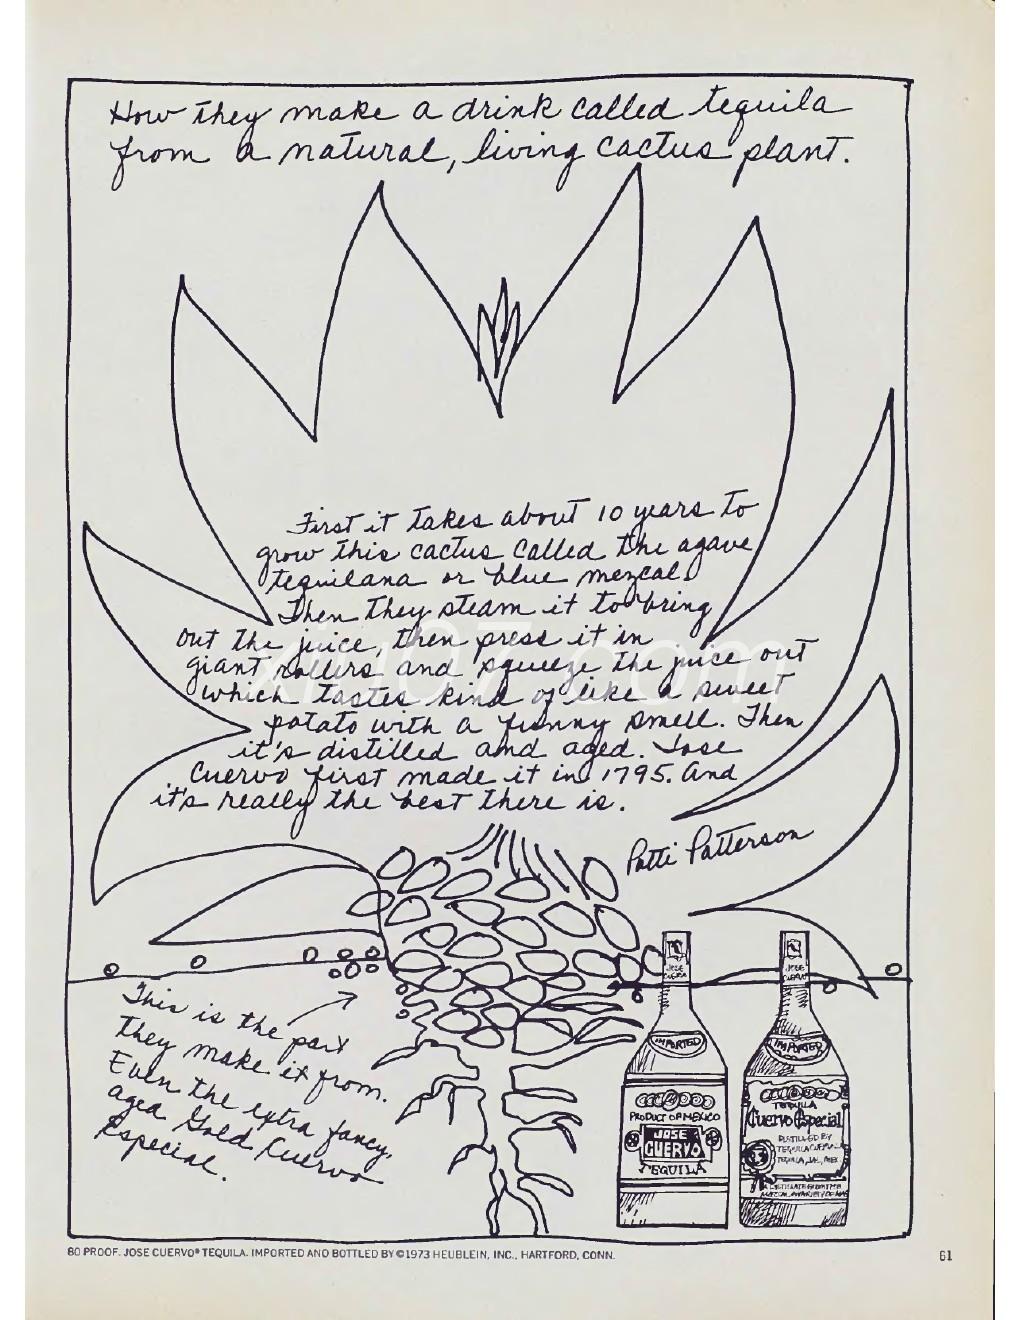 How they make a drink called tequila
from a natural, living cactus plant.
First it takes about 10 years to
grow this cactus called the agave
tequilana or blue mezcal.
Then they steam it to bring
out the juice, then press it in
giant rollers and squeeze the juice out
which tastes kind of like a sweet
potato with a funny smell. Then
it's distilled and aged. Jose
Cuervo first made it in 1795. And
it's really the best there is.
Patti Patterson
This is the part
they make it from.
Even the extra fancy,
aged Gold Cuervo
Especial.
JOSE
CUERVO
IMPORTED
PRODUCT OF MEXICO
JOSE
CUERVO
TEQUILA
JOSE
CUERVO
IMPORTED
TEQUILA
Cuervo Especial
DISTILLED BY
TEQUILA CUERVO
TEQUILA, JAL., MEX.
80 PROOF. JOSE CUERVO® TEQUILA. IMPORTED AND BOTTLED BY ©1973 HEUBLEIN, INC., HARTFORD, CONN.
61